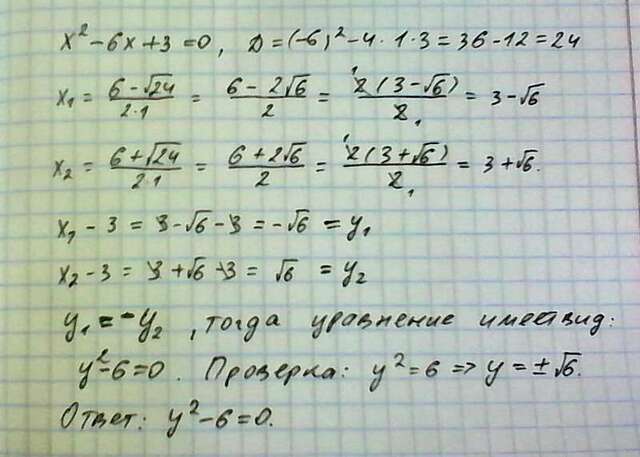 x² - 6x + 3 = 0, D = (-6)² - 4 · 1 · 3 = 36 - 12 = 24
x₁ = (6 - √24)/(2·1) = (6 - 2√6)/2 = ¹2(3 - √6)/2₁ = 3 - √6
x₂ = (6 + √24)/(2·1) = (6 + 2√6)/2 = ¹2(3 + √6)/2₁ = 3 + √6.
x₁ - 3 = 3 - √6 - 3 = -√6 = y₁
x₂ - 3 = 3 + √6 - 3 = √6 = y₂
y₁ = -y₂, тогда уравнение имеет вид:
y² - 6 = 0. Проверка: y² = 6 => y = ±√6.
Ответ: y² - 6 = 0.